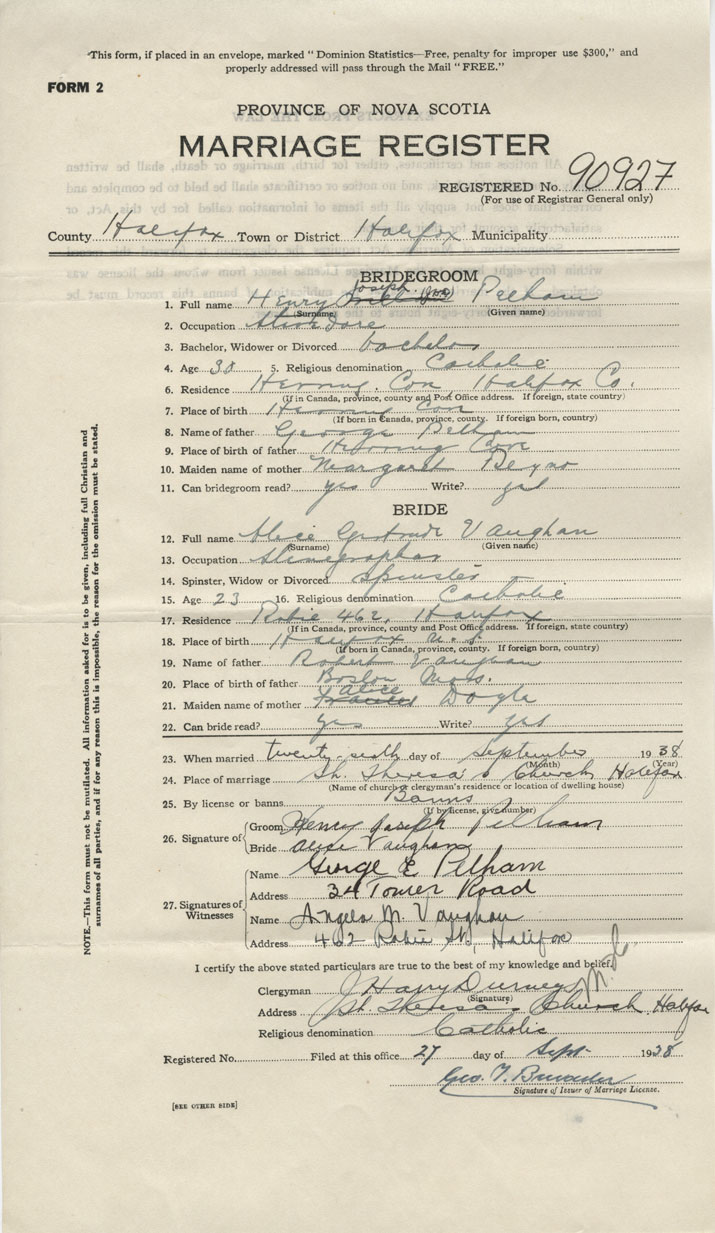 This form, if placed in an envelope, marked "Dominion Statistics—Free, penalty for improper use $300," and
properly addressed will pass through the Mail "FREE."
FORM 2
PROVINCE OF NOVA SCOTIA
MARRIAGE REGISTER
REGISTERED No. 90927
(For use of Registrar General only)
County Halifax Town or District Halifax Municipality
BRIDEGROOM
Joseph
1. Full name Henry Pelham
(Surname) (Given name)
2. Occupation Stevedore
3. Bachelor, Widower or Divorced bachelor
4. Age 30 5. Religious denomination Catholic
6. Residence Herring Cove Halifax Co.
(If in Canada, province, county and Post Office address. If foreign, state country)
7. Place of birth Herring Cove
(If born in Canada, province, county. If foreign born, country)
8. Name of father George Pelham
9. Place of birth of father Herring Cove
10. Maiden name of mother Margaret
11. Can bridegroom read? yes Write? yes
BRIDE
12. Full name Alice Gertrude Vaughan
(Surname) (Given name)
13. Occupation stenographer
14. Spinster, Widow or Divorced Spinster
15. Age 23 16. Religious denomination Catholic
17. Residence Robie 462, Halifax
(If in Canada, province, county and Post Office address. If foreign, state country)
18. Place of birth Halifax N. S.
(If born in Canada, province, county. If foreign born, country)
19. Name of father Robert Vaughan
20. Place of birth of father Boston Mass.
Alice
21. Maiden name of mother Frances Doyle
22. Can bride read? yes Write? yes
23. When married twenty-sixth day of September 1938
(Month) (Year)
24. Place of marriage St. Theresa's Church Halifax
(Name of church or clergyman's residence or location of dwelling house)
25. By license or banns Banns
(If by license, give number)
26. Signature of
Groom Henry Joseph Pelham
Bride Alice Vaughan
27. Signatures of Witnesses
Name George E Pelham
Address 34 Tower Road
Name Angela M. Vaughan
Address 462 Robie St., Halifax
I certify the above stated particulars are true to the best of my knowledge and belief.
Clergyman J Harry Durney
(Signature)
Address St. Theresa's Church Halifax
Religious denomination Catholic
Registered No. Filed at this office 27 day of Sept. 1938
Geo. T.
Signature of Issuer of Marriage License.
[SEE OTHER SIDE]
NOTE.—This form must not be mutilated. All information asked for is to be given, including full Christian and
surnames of all parties, and if for any reason this is impossible, the reason for the omission must be stated.